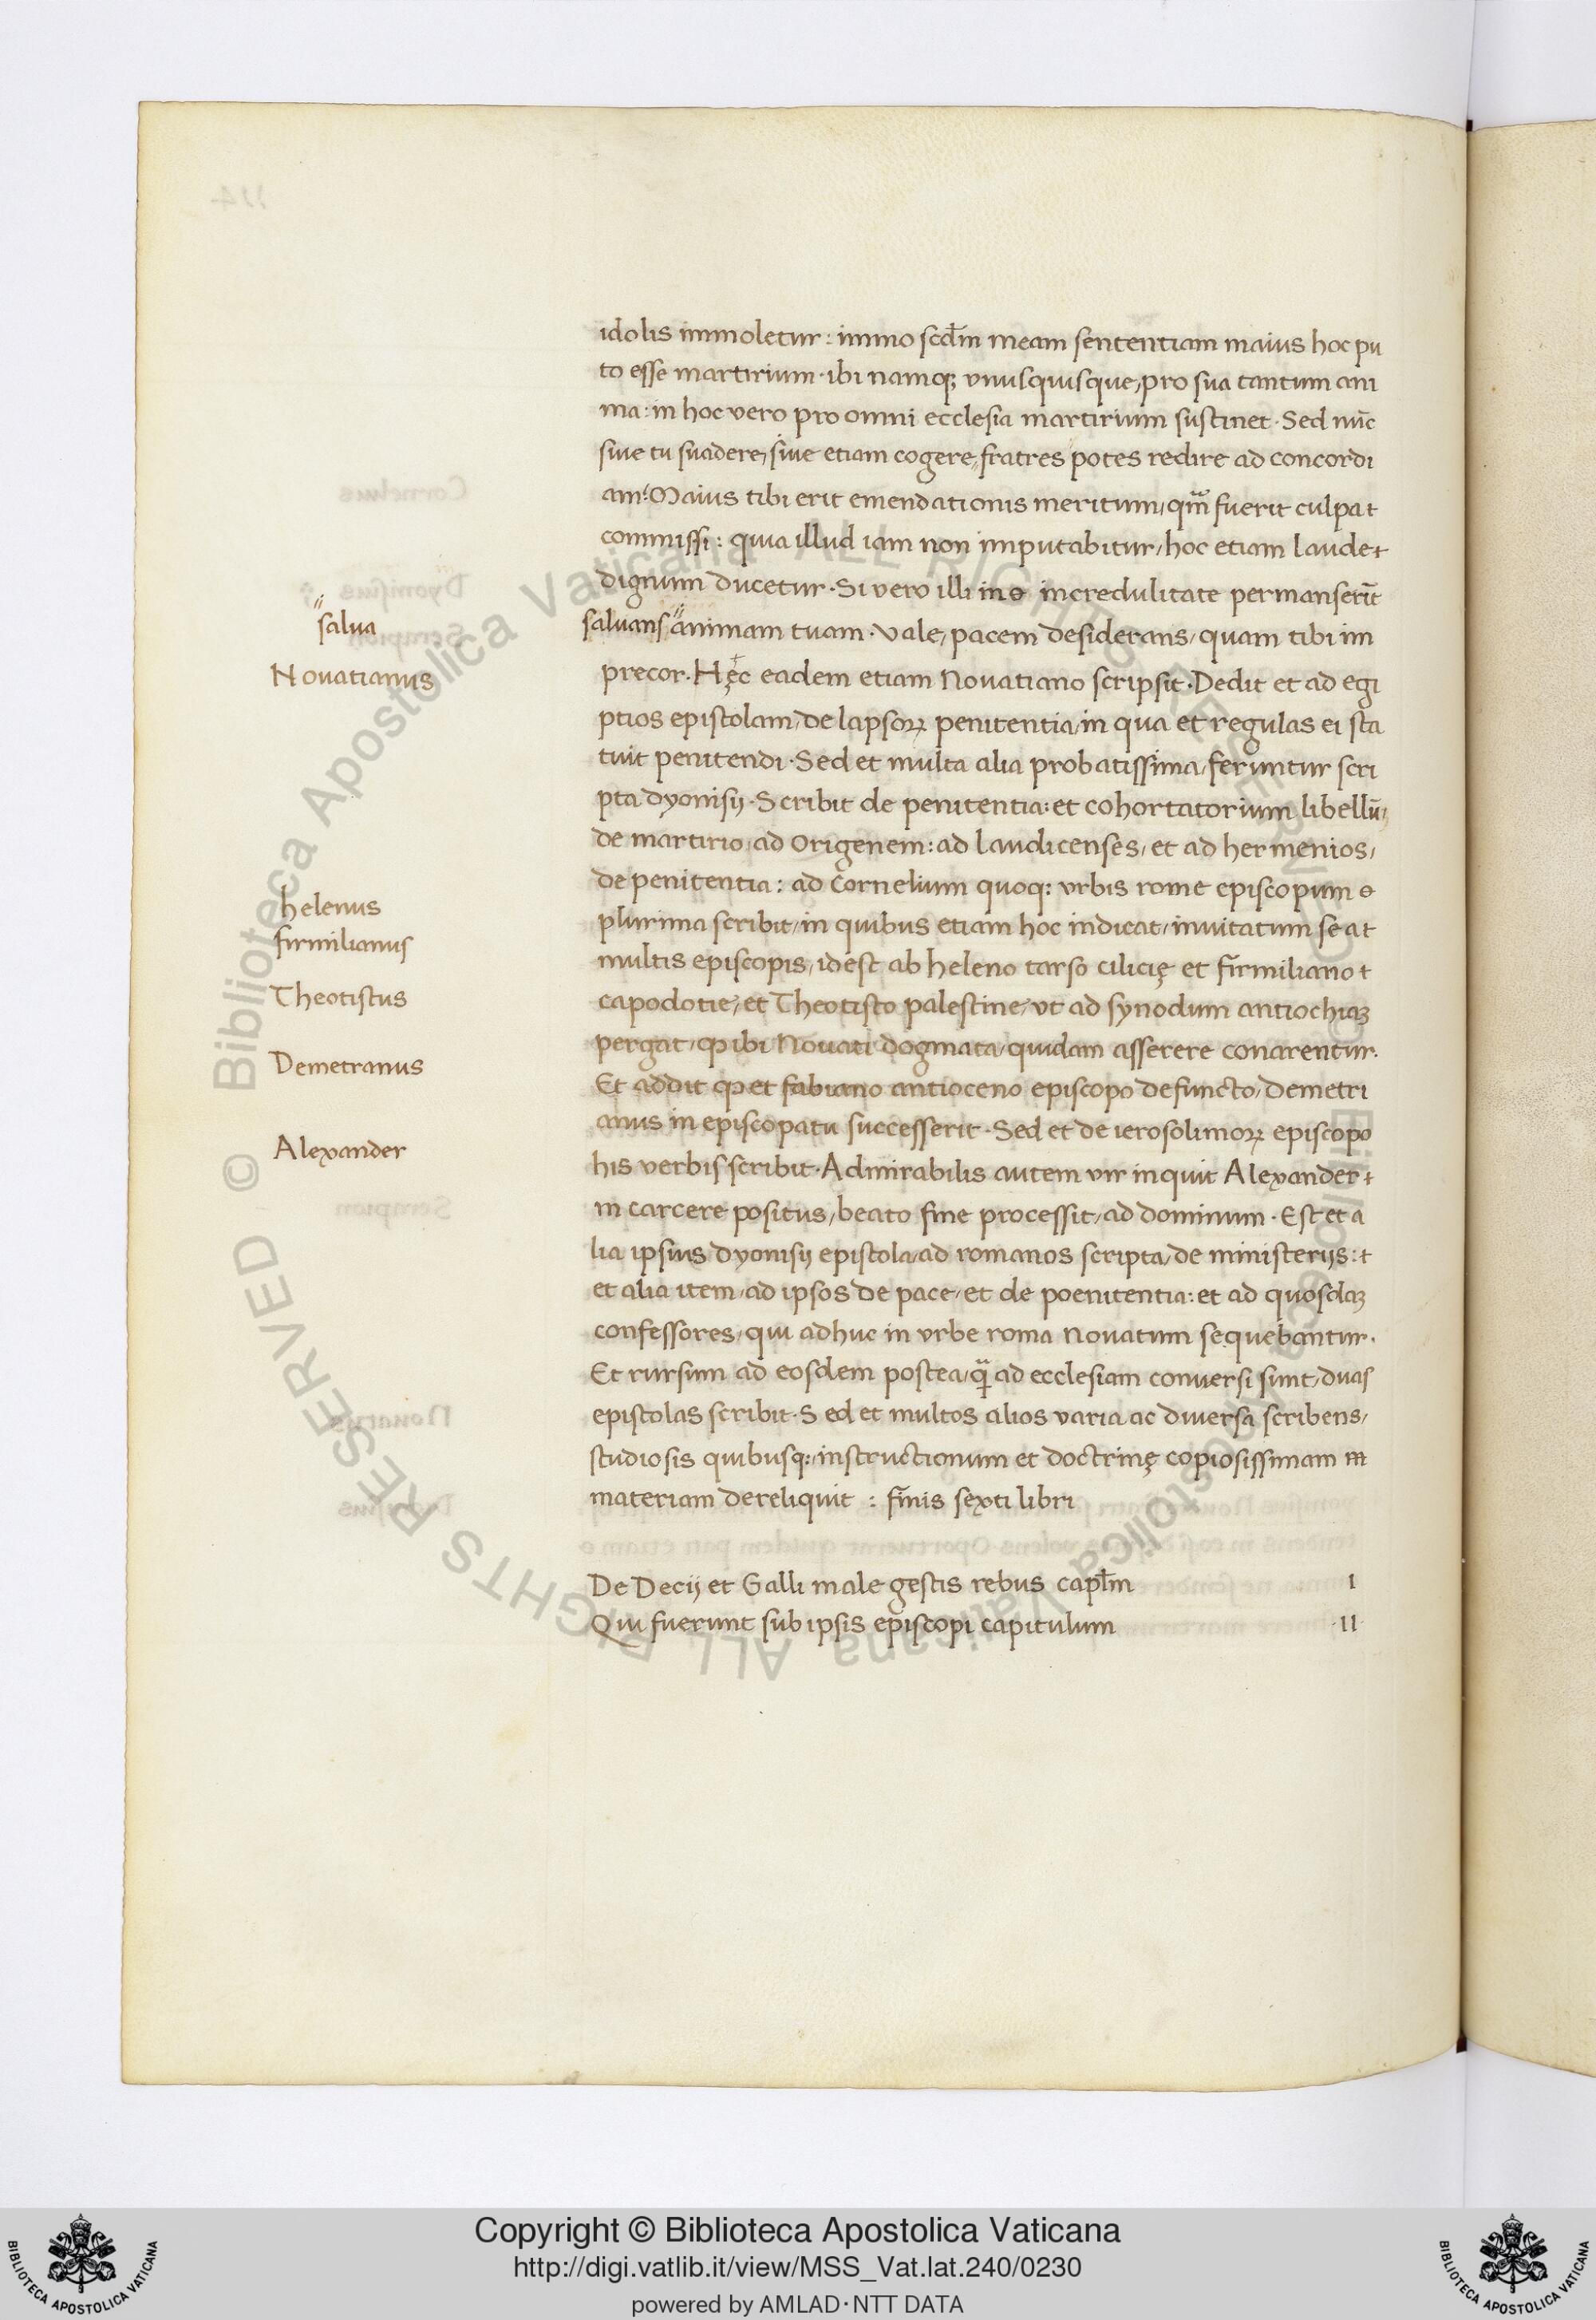 idolis immoletur : immo scdm̄ meam sententiam maius hoc pu
to esse martirium · ibi namqꝫ vnusquisque, pro sua tantum ani
ma : in hoc vero pro omni ecclesia martirium sustinet · Sed nūc
sive tu suadere, sive etiam cogere, fratres potes redire ad concordi
am : Maius tibi erit emendationis meritum, qm̄ fuerit culpa
commissi : quia illud iam non imputabitur, hoc etiam laude
dignum ducetur · Si vero illi in incredulitate permanserīt
salvans animam tuam · Vale, pacem desiderans, quam tibi im
precor · Hęc eadem etiam Novatiano scripsit · Dedit et ad egi
ptios epistolam, de lapsoꝝ penitentia, in qua et regulas ei sta
tuit penitendi · Sed et multa alia probatissima, feruntur scri
pta dyonisij · Scribit de penitentia : et cohortatorium libellū,
de martirio, ad Origenem : ad laudicenses, et ad hermenios,
de penitentia : ad Cornelium quoqꝫ vrbis rome episcopum
plurima scribit, in quibus etiam hoc indicat, invitatum se a
multis episcopis, idest ab heleno tarso cilicię et firmiliano
capodotie, et Theotisto palestine, vt ad synodum antiochiaꝫ
pergat, ꝙ ibi Novati dogmata, quidam asserere conarentur.
Et addit ꝙ et fabiano antioceno episcopo defuncto, Demetri
anus in episcopatu successerit · Sed et de ierosolimoꝝ episcopo
his verbis scribit · Admirabilis autem vir inquit Alexander
in carcere positus, beato fine processit, ad dominum · Est et a
lia ipsius dyonisij epistola, ad romanos scripta, de ministerijs :
et alia item, ad ipsos de pace, et de poenitentia : et ad quosdaꝫ
confessores, qui adhuc in vrbe roma Novatum sequebantur.
Et rursum ad eosdem postea, qͣ ad ecclesiam conversi sunt, duas
epistolas scribit · Sed et multos alios varia ac diversa scribens,
studiosis quibusqꝫ, instructionum et doctrinę copiosissimam
materiam dereliquit : finis sexti libri
De Decij et Galli male gestis rebus capl̄m I
Qui fuerunt sub ipsis episcopi capitulum ·II·
salva
Novatianus
helenus
firmilianus
Theotistus
Demetranus
Alexander
© Biblioteca Apostolica Vaticana ALL RIGHTS RESERVED
© Biblioteca Apostolica Vaticana ALL RIGHTS RESERVED
Copyright © Biblioteca Apostolica Vaticana
http://digi.vatlib.it/view/MSS_Vat.lat.240/0230
powered by AMLAD · NTT DATA
BIBLIOTECA APOSTOLICA VATICANA
BIBLIOTECA APOSTOLICA VATICANA